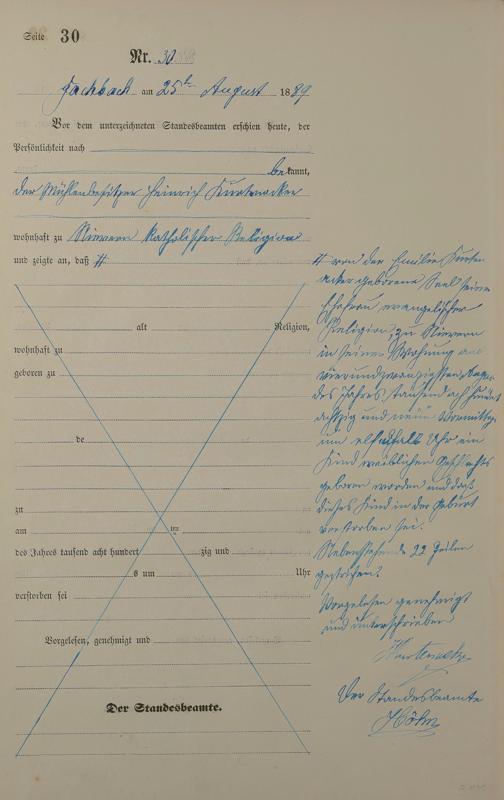 Seite 30
Nr. 30
Fachbach am 25ten August 1889
Vor dem unterzeichneten Standesbeamten erschien heute, der
Persönlichkeit nach
bekannt,
der Mühlenbesitzer Heinrich
wohnhaft zu Nievern katholischer Religion
und zeigte an, daß #
alt Religion,
wohnhaft zu
geboren zu
de
zu
am ten
des Jahres tausend acht hundert zig und
s um Uhr
verstorben sei
Vorgelesen, genehmigt und
Der Standesbeamte.
# von der Emilie Kurten
acker geborene Seel seiner
Ehefrau evangelischer
Religion, zu Nievern
in seiner Wohnung am
vierundzwanzigsten August
des Jahres tausend acht hundert
achtzig und neun Vormittags
um elf Uhr ein
Kind weiblichen Geschlechts
geboren worden und daß
dieses Kind in der Geburt
verstorben sei.
Nebenstehende 22 Zeilen
gestrichen.
Vorgelesen genehmigt
und unterschrieben
Der Standesbeamte
Höhn